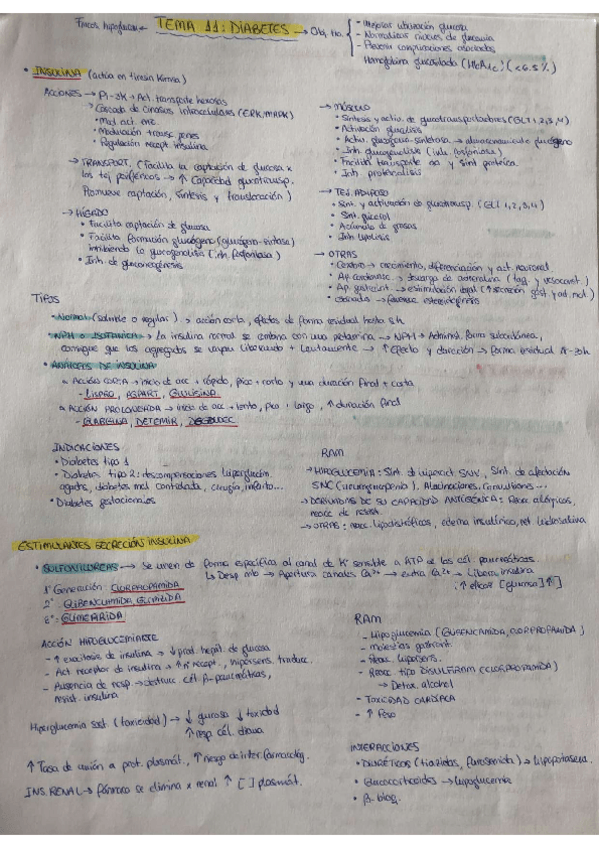 Fcos hipogluc ← TEMA 11: DIABETES → Obj. tto.
- Mejorar utilización glucosa
- Normalizar niveles de glucemia
- Prevenir complicaciones asociadas
Hemoglobina glucosilada (HbA1c) (<6.5%)
• INSULINA (actúa en tirosin kinasa)
ACCIONES → PI-3K + Act. transporte hexosas
→ Cascada de cinasas intracelulares (ERK, MAPK)
• Mod act. enz.
• Modulación transc. genes
• Regulación recept. insulina
→ TRANSPORT. (Facilita la captación de glucosa x
los tej periféricos → ↑ Capacidad glucotransp.
Promueve captación, síntesis y translocación)
→ HÍGADO
• Facilita captación de glucosa
• Facilita formación glucógeno (glucógeno-sintasa)
inhibiendo la glucogenolisis (inh. fosforilasa)
• Inh. de gluconeogénesis
→ MÚSCULO
• Síntesis y activ. de glucotransportadores (GLT 1,2,3,4)
• Activación glucolisis
• Activ. glucógeno sintetasa → almacenamiento glucógeno
• Inh. glucogenolisis (inh. fosforilasa)
• Facilita transporte aa y sint proteica
• Inh. proteinolisis
→ TEJ. ADIPOSO
• Sint. y activación de glucotransp. (GLT 1,2,3,4)
• Sint. glicerol
• Acúmulo de grasas
• Inh. lipolisis
→ OTRAS
• Cerebro → crecimiento, diferenciación y act. neuronal
• Ap. cardiovasc. → descarga de adrenalina (taq. y vasoconst.)
• Ap. gastroint. → estimulación vagal (↑ secreción gást. y act. mot.)
• Gónadas → favorece esteroidogénesis
TIPOS
• Normal (soluble o regular) → acción corta, efectos de forma residual hasta 8h
• NPH o ISOFÁNICA → La insulina normal se combina con una protamina → NPH → Administ. forma subcutánea,
consigue que los agregados se vayan liberando + lentamente → ↑ efecto y duración → forma residual
• ANÁLOGOS DE INSULINA
ACCIÓN CORTA → inicio de acc + rápido, pico + corto y una duración final + corta
- LISPRO, ASPART, GLULISINA
ACCIÓN PROLONGADA → inicio de acc + lento, pico + largo, ↑ duración final
- GLARGINA, DETEMIR, DEGLUDEC
INDICACIONES
• Diabetes tipo 1
• Diabetes tipo 2: descompensaciones hiperglucém.
agudas, diabetes mal controlada, cirugía, infarto...
• Diabetes gestacionales
RAM
→ HIPOGLUCEMIA: Sint. de hiperact. SNV., Sint. de afectación
SNC (neuroglucopenia). Alucinaciones, convulsiones...
→ DERIVADAS DE SU CAPACIDAD ANTIGÉNICA: Reacc alérgicas,
reacc de resist.
→ OTRAS: reacc. lipodistróficas, edema insulínico, ret hidrosalina
ESTIMULANTES SECRECIÓN INSULINA
• SULFONILUREAS → Se unen de forma específica al canal de K⁺ sensible a ATP de las cél. pancreáticas.
↳ Desp mb → Apertura canales Ca²⁺ → entra Ca²⁺ → Libera insulina
↑ eficaz [glucosa] ↑
1ª Generación CLORPROPAMIDA
2ª: GLIBENCLAMIDA, GLIPIZIDA
3ª: GLIMEPIRIDA
ACCIÓN HIPOGLUCEMIANTE
- ↑ excitosis de insulina → ↓ prod. hepát. de glucosa
- Act receptor de insulina → ↑ nº recept., hipersens. transduc.
- Ausencia de resp → destrucc. cél. β-pancreáticas,
resist. insulina
Hiperglucemia sost. (toxicidad) → ↓ glucosa ↓ toxicidad
↑ resp cél. diana
↑ Tasa de unión a prot. plasmát., ↑ riesgo de inter. farmacológ.
INS. RENAL → fármaco se elimina x renal ↑ [ ] plasmát.
RAM
- Hipoglucemia (GLIBENCAMIDA, CLORPROPAMIDA)
- molestias gastroint.
- Reacc. hipersens.
- Reacc. tipo DISULFIRAM (CLORPROPAMIDA)
→ Detox. alcohol
- TOXICIDAD CARDÍACA
- ↑ Peso
INTERACCIONES
• DIURÉTICOS (tiazidas, furosemida) → hipopotasem.
• Glucocorticoides →
• β-bloq.